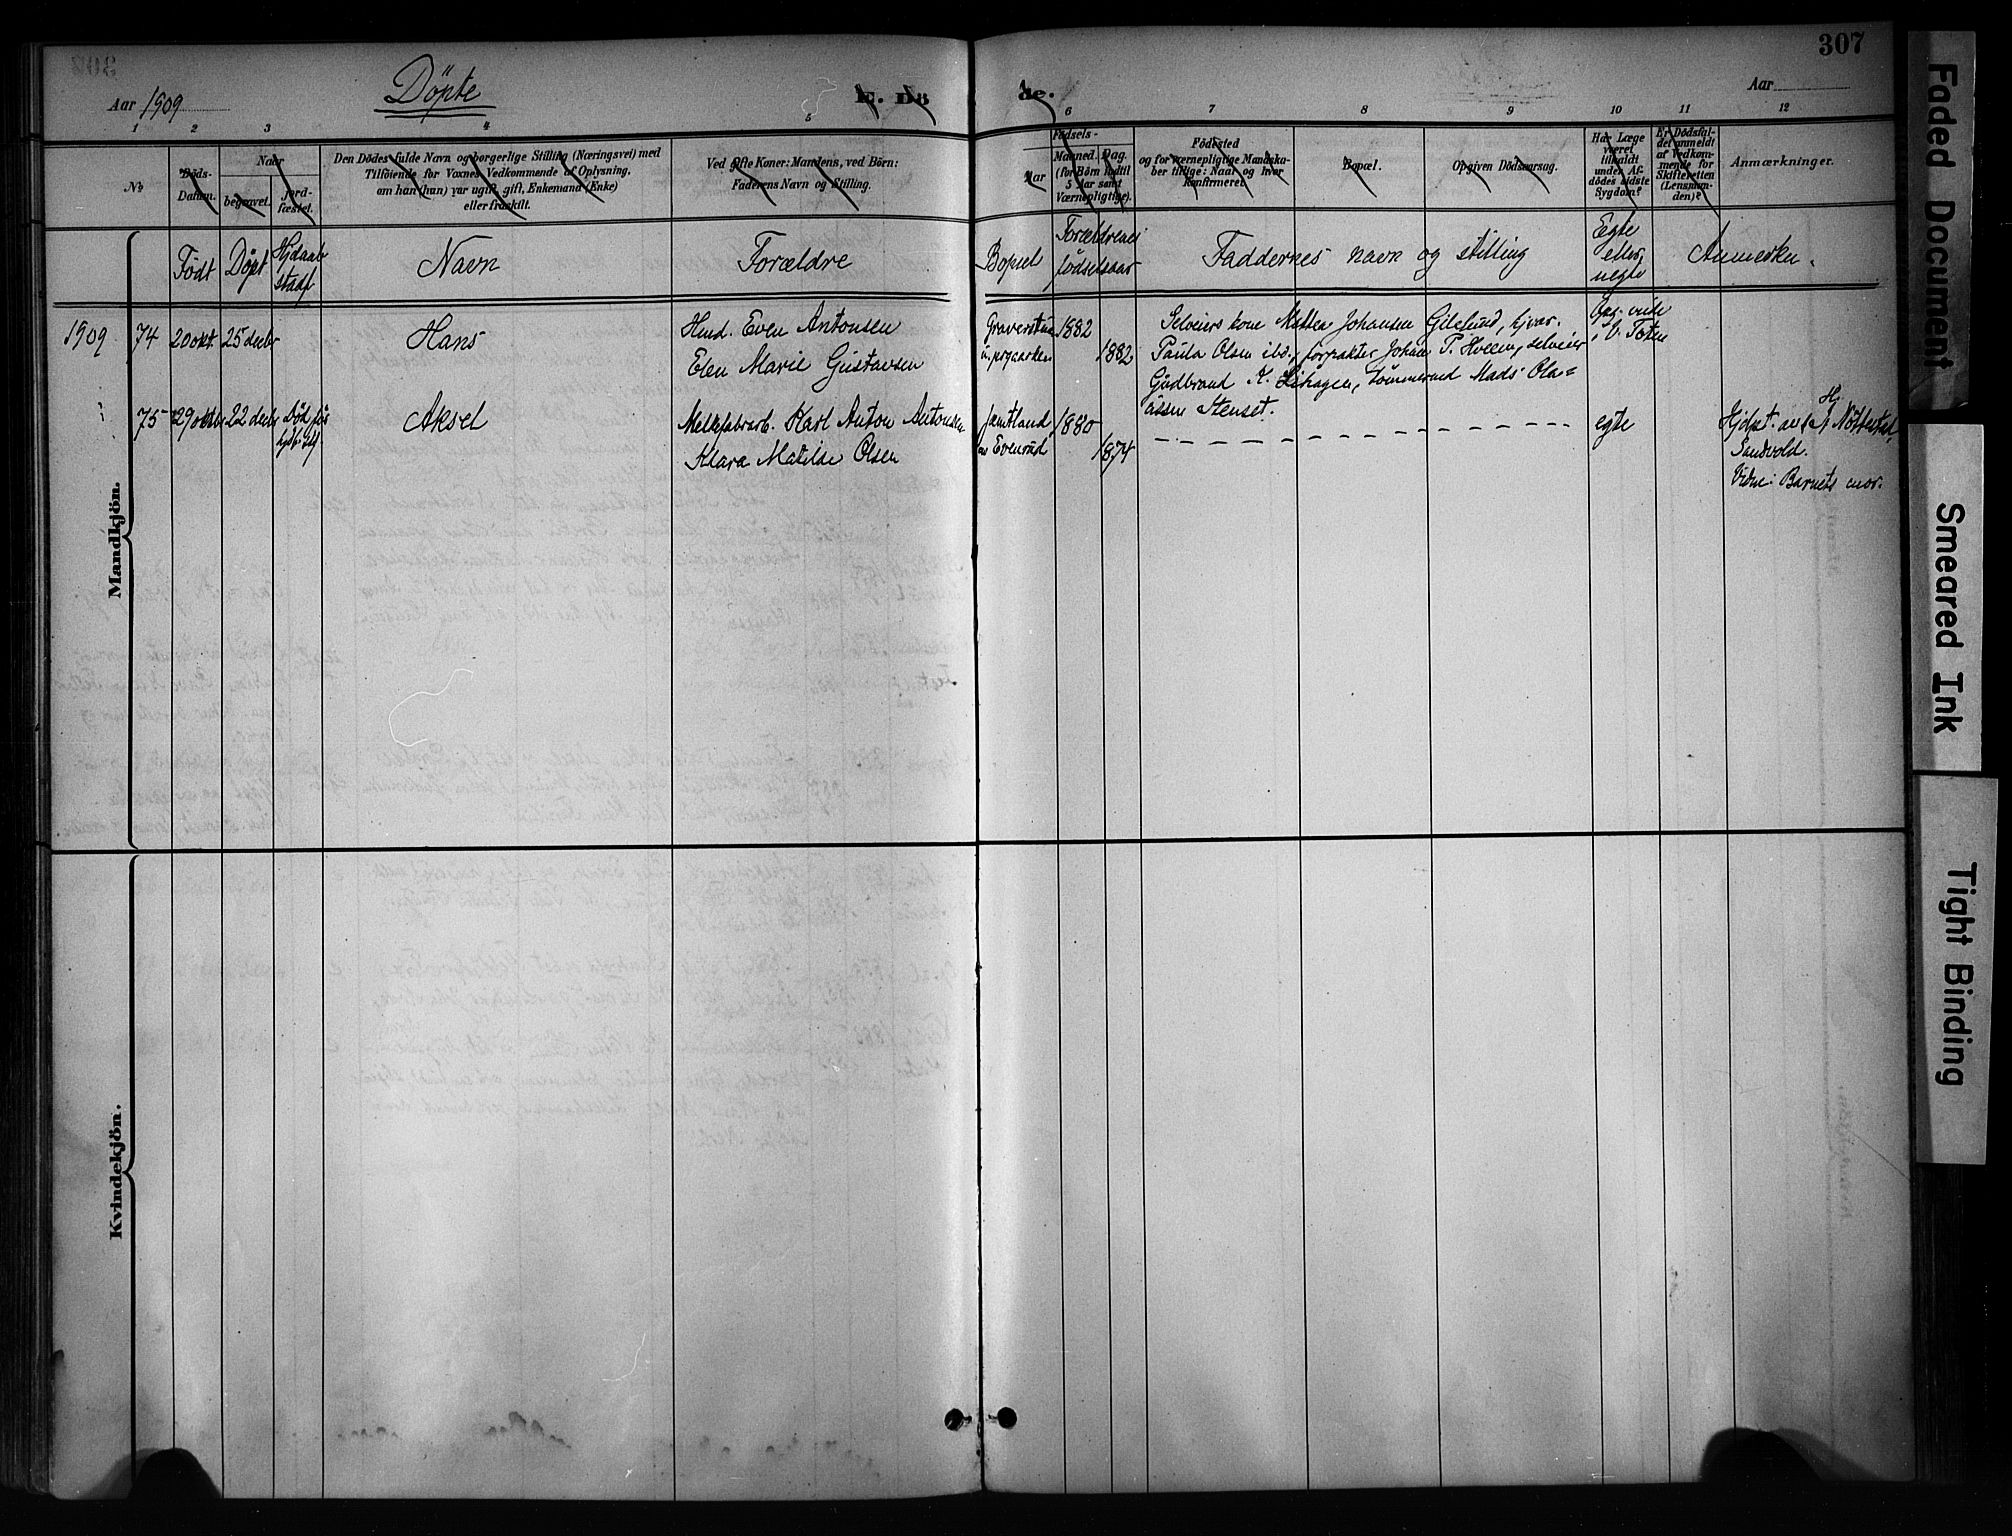 307
Aar 1909
Döpte
E. Dö
de.
Aar
1 2 3 4 5 6 7 8 9 10 11 12
No
Döds-
Datum.
Naar
begravet.
jord-
fæstet.
Den Dödes fulde Navn og borgerlige Stilling (Næringsvei) med
Tilföiende for Voxnes Vedkommende af Oplysning,
om han (hun) var ugift, gift, Enkemand (Enke)
eller fraskilt.
Ved Gifte Koner: Mandens, ved Börn:
Faderens Navn og Stilling.
Födsels-
Aar
Maaned.
(for Börn indtil
5 Aar samt
Værnepligtige).
Dag.
Födested
og for værnepligtige Mandska-
ber tillige: Naar og hvor
konfirmeret.
Bopæl.
Opgiven Dödsaarsag.
Har Læge
været
tilkaldt
under Af-
dödes sidste
Sygdom?
Er Dödsfal-
det anmeldt
af Vedkom-
mende for
Skifteretten
(Lensman-
den)?
Anmærkninger.
Födt
Döpt
Hjdaab
stadf
Navn
Forældre
Bopæl
Forældrenes
födselsaar
Faddernes navn og stilling
Egte
eller
uegte
Anmerkn.
Mandkjön.
1909 74 20 okt. 25 decbr Hans Hmd. Even Antonsen 1882
Elen Marie Gustavsen 1882
Selveiers kone Mathea Johansen Gilelund, hjvar.
Paula Olsen ibd., forpakter Johan P. Hveem, selveier
Gudbrand K. Lihagen, tömmermd Mads Ola=
üssen Stenset.
V. Toten
75 29 oktbr 22 decbr Aksel Melkefabrarb. Karl Anton Antonsen 1880
Klara Matilde Olsen
Evenrud 1874
egte
Hjdpt. av Nötterstad,
Sandvold.
Vidne: Barnets mor.
Kvindekjön.
Faded Document
Smeared Ink
Tight Binding